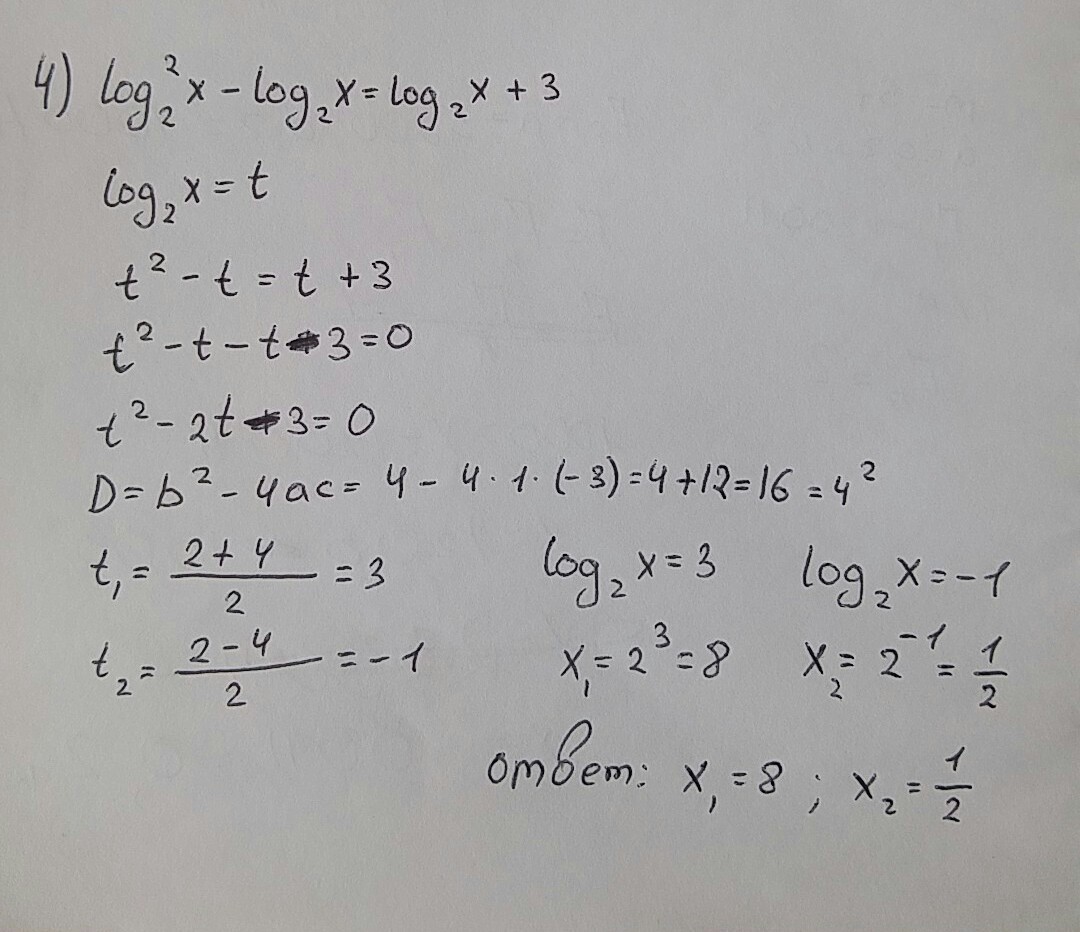 4) log₂²x - log₂x = log₂x + 3
log₂x = t
t² - t = t + 3
t² - t - t - 3 = 0
t² - 2t - 3 = 0
D = b² - 4ac = 4 - 4·1·(-3) = 4 + 12 = 16 = 4²
t₁ = (2 + 4)/2 = 3
t₂ = (2 - 4)/2 = -1
log₂x = 3
x₁ = 2³ = 8
log₂x = -1
x₂ = 2⁻¹ = 1/2
ответ: x₁ = 8 ; x₂ = 1/2